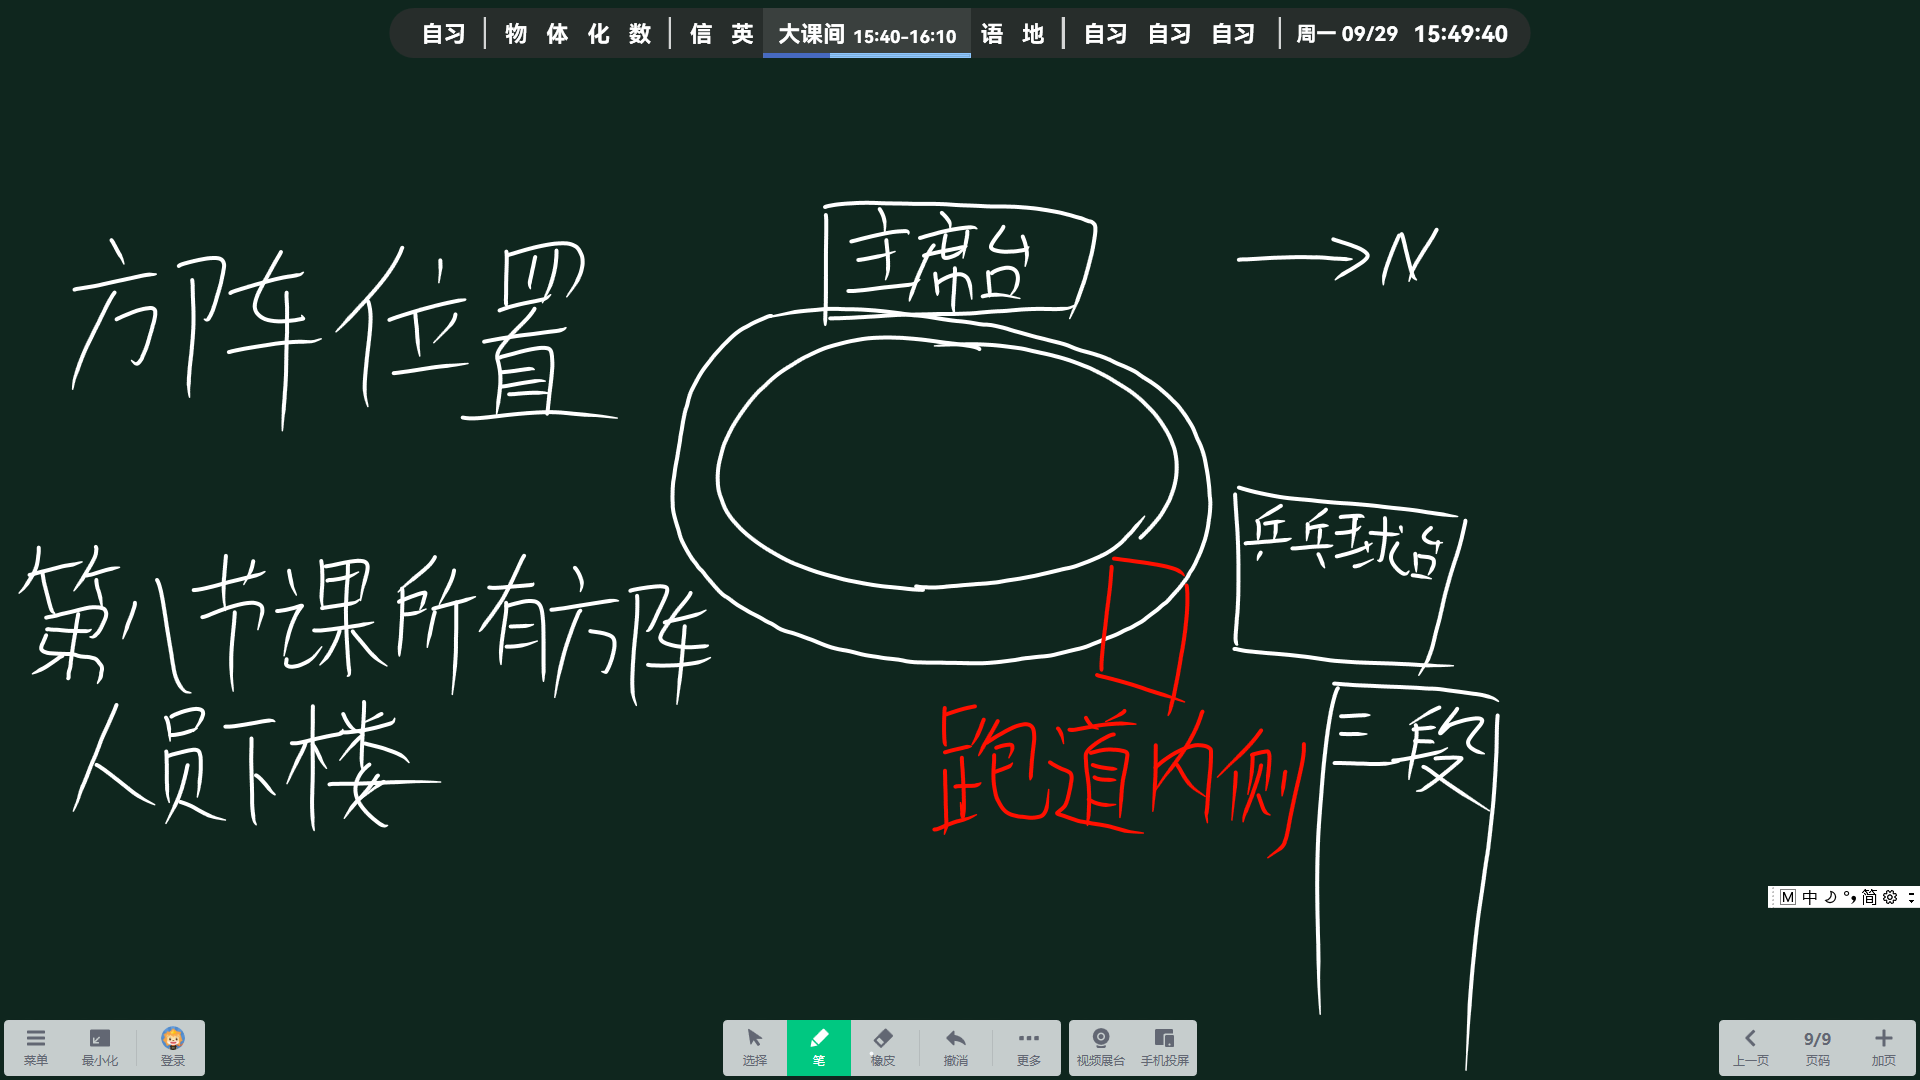 自习 | 物 体 化 数 | 信 英 大课间 15:40-16:10 语 地 | 自习 自习 自习 | 周一 09/29 15:49:40
主席台
→N
方阵位置
乒乓球台
第八节课所有方阵
人员下楼
三段
跑道内侧
M 中 简
菜单 最小化 登录 选择 笔 橡皮 撤消 更多 视频展台 手机投屏 上一页 9/9 页码 加页